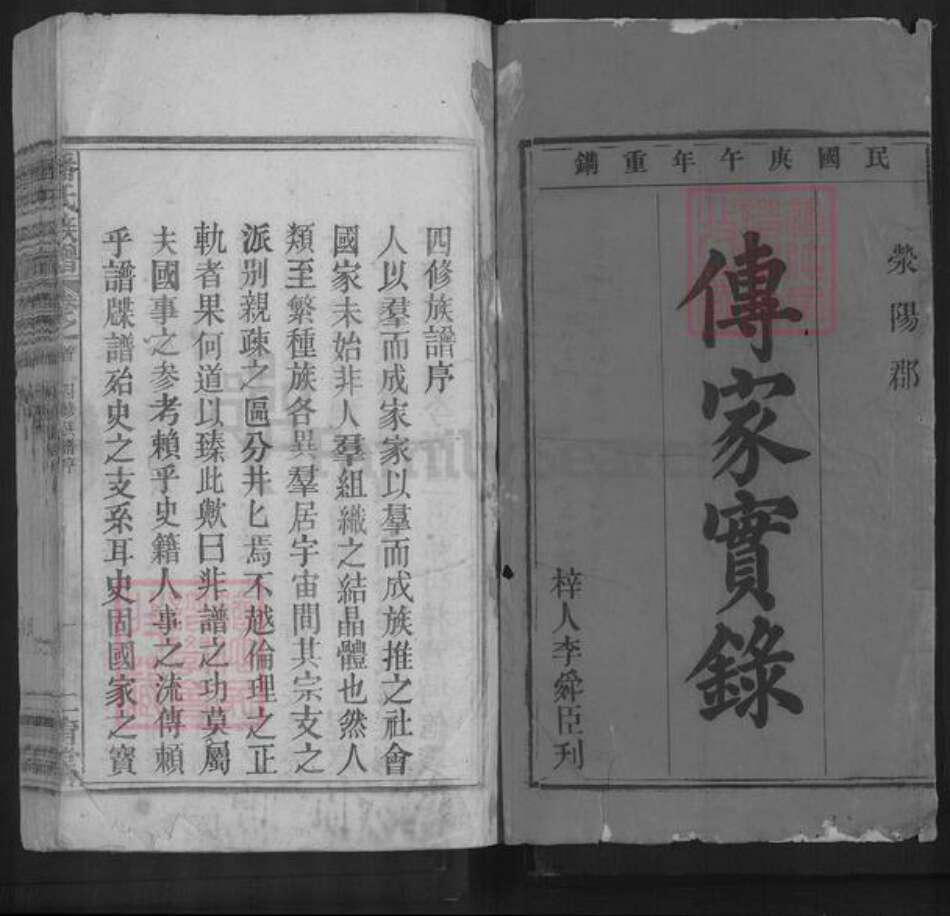 民國庚午年重鐫
滎陽郡
傳家實錄
梓人李舜臣刋
四修族譜序
人以羣而成家家以羣而成族推之社會
國家未始非人羣組織之結晶體也然人
類至繁種族各異羣居宇宙間其宗支之
派別親疎之區分井匕焉不越倫理之正
軌者果何道以臻此歟曰非譜之功莫屬
夫國事之參考賴乎史籍人事之流傳賴
乎譜牒譜殆史之支系耳史固國家之寶
潘氏族譜
四修族譜序